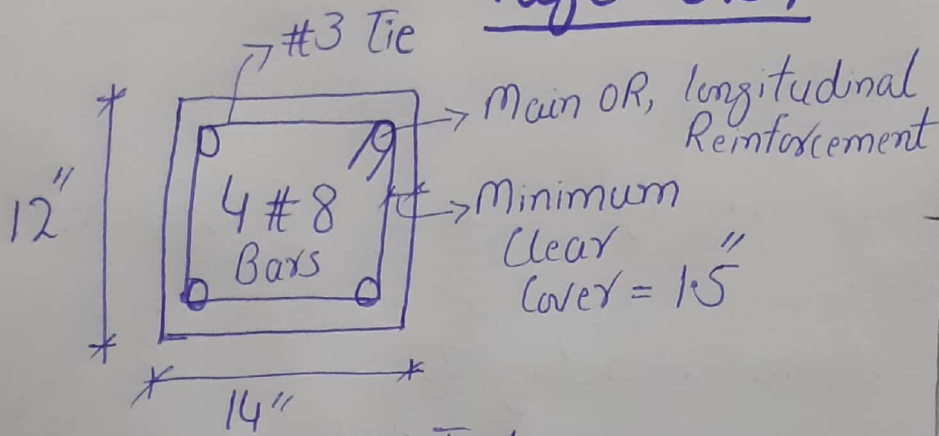 #3 Tie
Main OR, longitudinal
Reinforcement
12"
4 #8
Bars
Minimum
Clear
Cover = 1.5"
14"